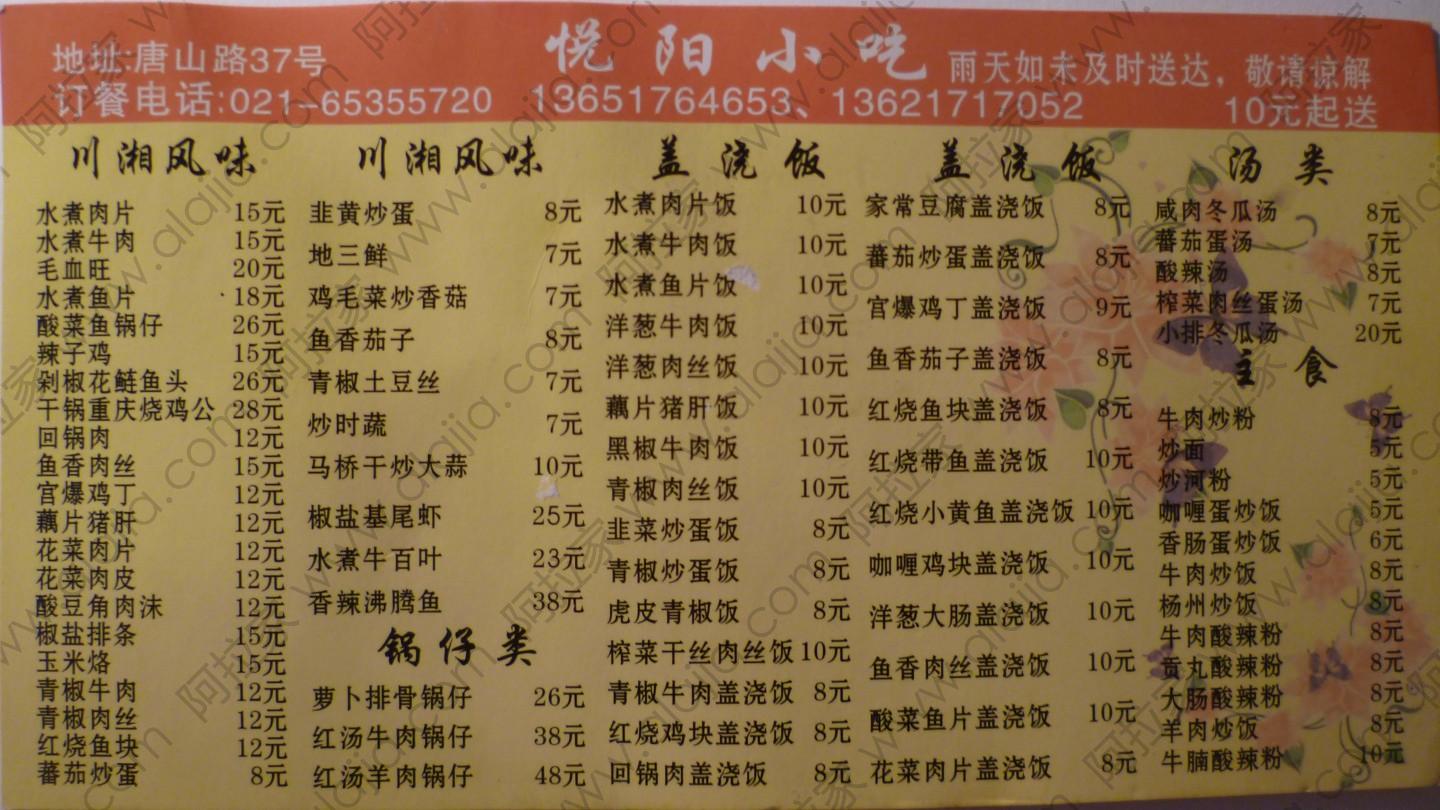 悦阳小吃
地址:唐山路37号
雨天如未及时送达，敬请谅解
订餐电话:021-65355720 13651764653、13621717052
10元起送
川湘风味
水煮肉片 15元
水煮牛肉 15元
毛血旺 20元
水煮鱼片 18元
酸菜鱼锅仔 26元
辣子鸡 15元
剁椒花鲢鱼头 26元
干锅重庆烧鸡公 28元
回锅肉 12元
鱼香肉丝 15元
宫爆鸡丁 12元
藕片猪肝 12元
花菜肉片 12元
花菜肉皮 12元
酸豆角肉沫 12元
椒盐排条 15元
玉米烙 15元
青椒牛肉 12元
青椒肉丝 12元
红烧鱼块 12元
蕃茄炒蛋 8元
川湘风味
韭黄炒蛋 8元
地三鲜 7元
鸡毛菜炒香菇 7元
鱼香茄子 8元
青椒土豆丝 7元
炒时蔬 7元
马桥干炒大蒜 10元
椒盐基尾虾 25元
水煮牛百叶 23元
香辣沸腾鱼 38元
锅仔类
萝卜排骨锅仔 26元
红汤牛肉锅仔 38元
红汤羊肉锅仔 48元
盖浇饭
水煮肉片饭 10元
水煮牛肉饭 10元
水煮鱼片饭 10元
洋葱牛肉饭 10元
洋葱肉丝饭 10元
藕片猪肝饭 10元
黑椒牛肉饭 10元
青椒肉丝饭 10元
韭菜炒蛋饭 8元
青椒炒蛋饭 8元
虎皮青椒饭 8元
榨菜干丝肉丝饭 10元
青椒牛肉盖浇饭 8元
红烧鸡块盖浇饭 8元
回锅肉盖浇饭 8元
盖浇饭
家常豆腐盖浇饭 8元
蕃茄炒蛋盖浇饭 8元
宫爆鸡丁盖浇饭 9元
鱼香茄子盖浇饭 8元
红烧鱼块盖浇饭 8元
红烧带鱼盖浇饭 10元
红烧小黄鱼盖浇饭 10元
咖喱鸡块盖浇饭 10元
洋葱大肠盖浇饭 10元
鱼香肉丝盖浇饭 10元
酸菜鱼片盖浇饭 10元
花菜肉片盖浇饭 8元
汤类
咸肉冬瓜汤 8元
蕃茄蛋汤 7元
酸辣汤 8元
榨菜肉丝蛋汤 7元
小排冬瓜汤 20元
主食
牛肉炒粉 8元
炒面 5元
炒河粉 5元
咖喱蛋炒饭 5元
香肠蛋炒饭 6元
牛肉炒饭 8元
杨州炒饭 8元
牛肉酸辣粉 8元
贡丸酸辣粉 8元
大肠酸辣粉 8元
羊肉炒饭 8元
牛腩酸辣粉 10元
阿拉家 www.alajia.com